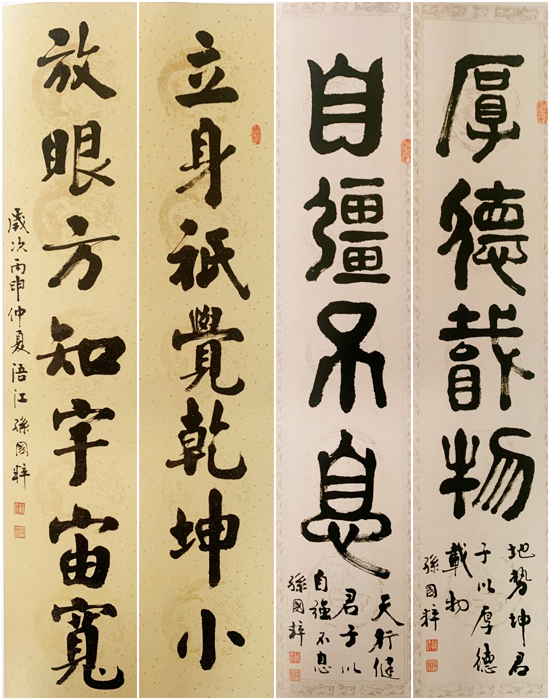 厚德載物
地勢坤君
子以厚德
載物
孫國粹
自彊不息
天行健
君子以
自強不息
孫國粹
立身祇覺乾坤小
放眼方知宇宙寬
歲次丙申仲夏浯江孫國粹